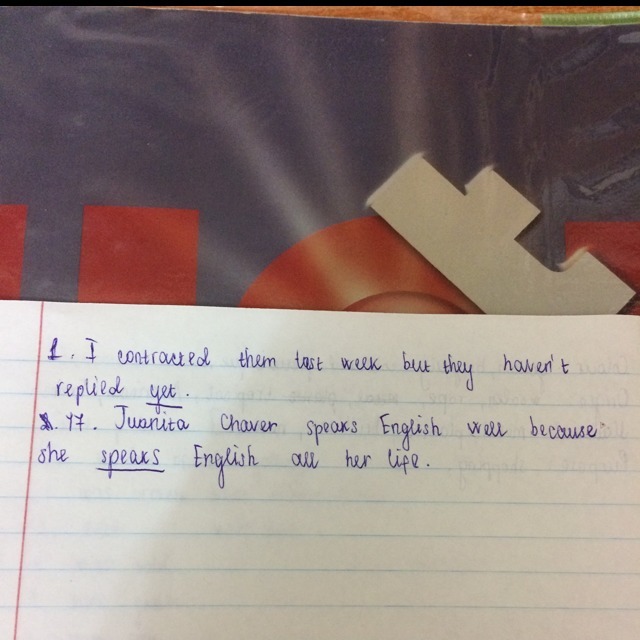 1. I contracted them last week but they haven't
replied yet.
47. Juanita Chaver speaks English well because
she speaks English all her life.